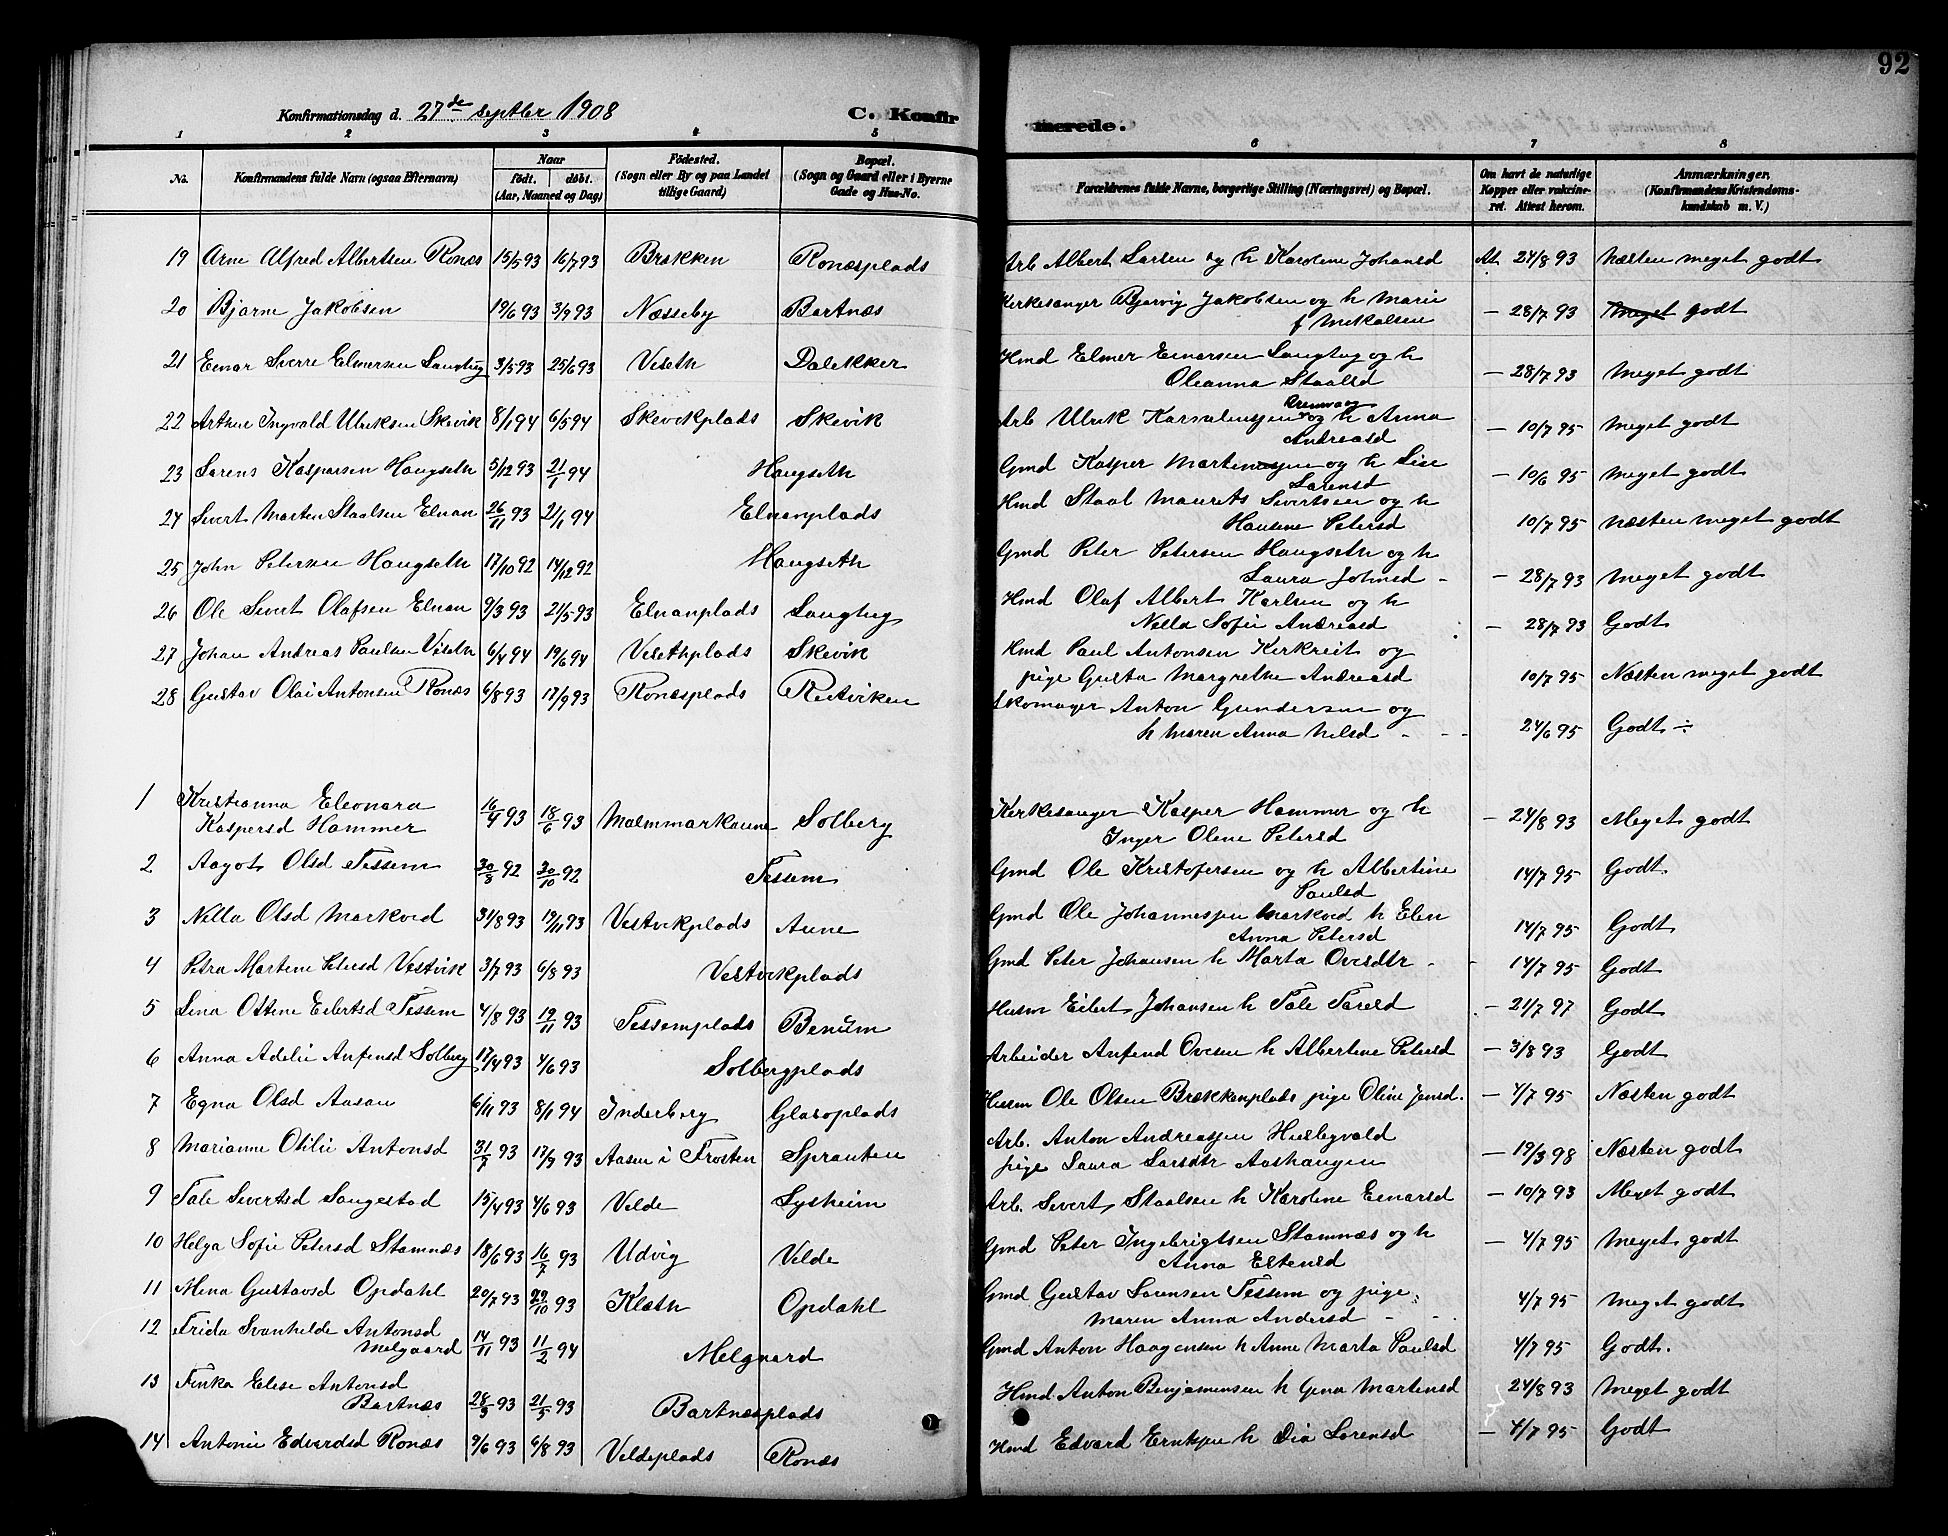 92
Konfirmationsdag d. 27de septber 1908 C. Konfirmerede.
1 2 3 4 5 6 7 8
No. Konfirmandens fulde Navn (ogsaa Efternavn) Naar født. døbt. (Aar, Maaned og Dag) Fødested. (Sogn eller By og paa Landet tillige Gaard) Bopæl. (Sogn og Gaard eller i Byerne Gade og Hus-No. Forældrenes fulde Navne, borgerlige Stilling (Næringsvei) og Bopæl. Om havt de naturlige Kopper eller vakcineret. Attest herom. Anmærkninger, (Konfirmandens Kristendomskundskab m. V.)
19 Arne Alfred Albertsen Ronæs 15/5 93 16/7 93 Brækken Ronæsplads Arb Albert Larsen og h Karoline Johansd At 24/8 93 Næsten meget godt
20 Bjarne Jakobsen 19/6 93 3/9 93 Næsseby Bartnæs Kirkesanger Bjarvig Jakobsen og h Marie f Mikalsen — 28/7 93 Meget godt
21 Einar Sverre Elmersen Langtug 3/5 93 25/6 93 Viseth Dalekker Hmd Elmer Einarsen Langtug og h Oleanna Staalsd — 28/7 93 Meget godt
22 Arthur Ingvald Ulriksen Skevik 8/1 94 6/5 94 Skevikplads Skevik Arb Ulrik og h Anna Andreasd — 10/7 95 Meget godt
23 Lorens Kaspersen Haugseth 5/12 93 21/1 94 Haugseth Gmd Kasper Martinesen og h Lise Lorensd — 10/6 95 Meget godt
24 Sivert Martin Staalsen Elnan 26/11 93 21/1 94 Elnanplads Hmd Staal Maurits Sivertsen og h Hansine Petersd 10/7 95 Næsten meget godt
25 John Petersen Haugseth 17/10 92 14/12 92 Haugseth Gmd Peter Petersen Haugseth og h Laura Johnsd — 28/7 93 Meget godt
26 Ole Sivert Olafsen Elnan 9/3 93 21/5 93 Elnanplads Langtug Hmd Olaf Albert Karlsen og h Nella Sofie Andreasd — 28/7 93 Godt
27 Johan Andreas Paulsen Viseth 6/4 94 19/6 94 Visethplads Skevik Hmd Paul Antonsen Kirkreit og pige Gusta Margrethe Andreasd 10/7 95 Næsten meget godt
28 Gustav Olai Antonsen Ronæs 6/8 93 17/9 93 Ronæsplads Reitviken Skomager Anton Gundersen og h Maren Anna Nilsd 24/6 95 Godt ÷
1 Kristianna Eleonora Kaspersd Hammer 16/4 93 18/6 93 Malmmarkaune Solberg Kirkesanger Kasper Hammer og h Inger Oline Petersd — 24/8 93 Meget godt
2 Aagot Olsd Tessem 30/8 92 30/10 92 Tessem Gmd Ole Kristofersen og h Albertine Paulsd 14/7 95 Godt
3 Nella Olsd Markvid 31/8 93 19/11 93 Vestvikplads Aune Gmd Ole Johannesen Markvid h Elen Anna Petersd 14/7 95 Godt
4 Petra Martine Petersd Vestvik 3/7 93 6/8 93 Vestvikplads Gmd Peter Johansen h Marta Oversdtr 14/7 95 Godt
5 Lina Ottine Eilertsd Tessem 4/8 93 19/11 93 Tessemplads Benum Husm Eilert Johansen h Tale Tareld — 21/7 97 Godt
6 Anna Adelie Anfinsd Solberg 17/4 93 4/6 93 Solbergplads Arbeider Anfind Ovesen h Albertine Petersd — 3/8 93 Godt
7 Egna Olsd Aasan 6/11 93 8/1 94 Inderberg Glasoplads Husm Ole Olsen Brækkenplads pige Oline Jensd. — 4/7 95 Næsten godt
8 Marianne Otilie Antonsd 31/7 93 17/9 93 Aasen i Frosten Sprauten Arb. Anton Andreassen Husbyvald pige Laura Larsdtr Aashaugen — 19/3 98 Næsten godt
9 Tale Sivertsd Langestad 15/4 93 4/6 93 Velde Lysheim Arb. Sivert Staalsen h Karoline Einarsd — 10/7 93 Meget godt
10 Helga Sofie Petersd Stamnæs 18/6 93 16/7 93 Udvig Velde Gmd Peter Ingebrigtsen Stamnæs og h Anna Eliensd — 4/7 95 Meget godt
11 Mina Gustavsd Opdahl 20/7 93 29/10 93 Klæth Opdahl Gmd Gustav Sorensen Tessem og pige Maren Anna Andersd 4/7 95 Meget godt
12 Frida Svanhilde Antonsd Melgaard 14/11 93 11/2 94 Melgaard Gmd Anton Haagensen h Anne Marta Paulsd 4/7 95 Godt.
13 Finka Elise Antonsd Bartnæs 28/3 93 21/5 93 Bartnæsplads Hmd Anton Benjaminsen h Gina Martinsd 24/8 93 Meget godt
14 Antonie Edvardsd Ronæs 9/6 93 6/8 93 Veldeplads Ronæs Hmd Edvard Eriksen h Dia Lorensd — 4/7 95 Godt